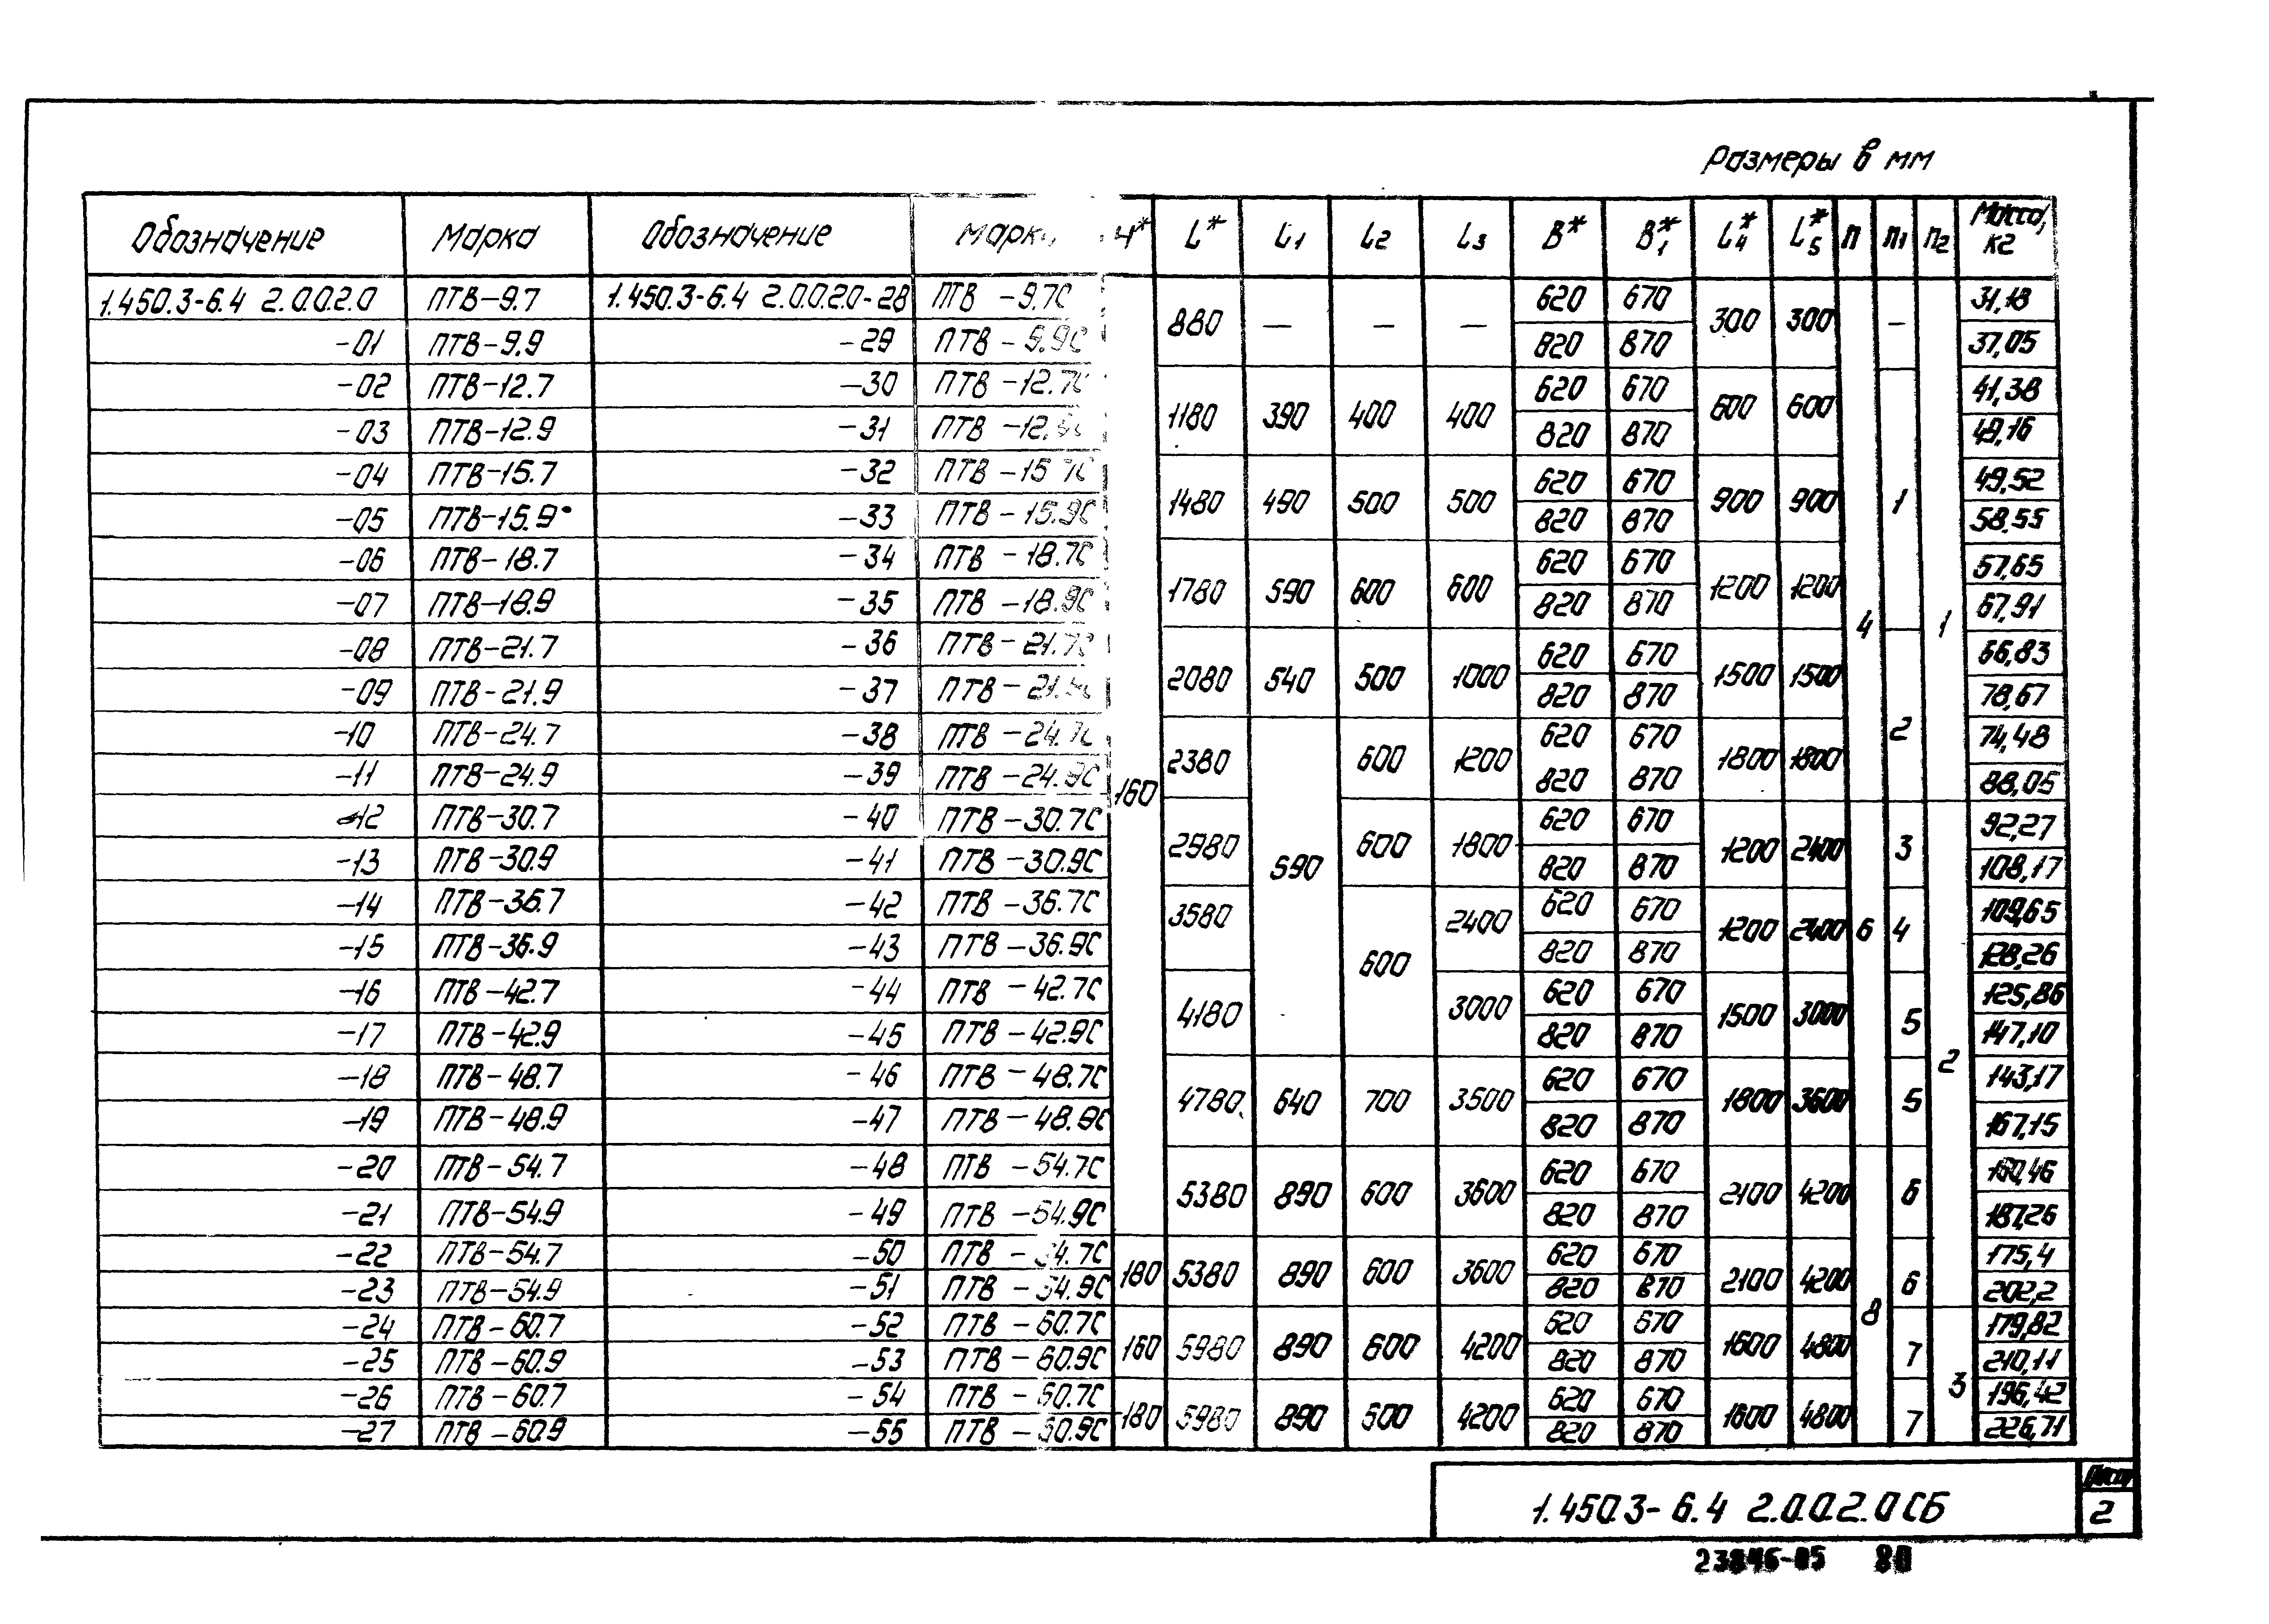 Размеры в мм
Обозначение Марка Обозначение Марка H* L* L1 L2 L3 B* B1* L4* L5* п п1 п2 Масса, кг
1.450.3-6.4 2.0.0.2.0 ПТВ-9.7 1.450.3-6.4 2.0.0.2.0-28 ПТВ -9.7С 160 880 — — — 620 670 300 300 4 — 1 31,18
-01 ПТВ-9.9 -29 ПТВ -9.9С 820 870 37,05
-02 ПТВ-12.7 -30 ПТВ -12.7С 1180 390 400 400 620 670 600 600 1 41,38
-03 ПТВ-12.9 -31 ПТВ -12.9С 820 870 49,16
-04 ПТВ-15.7 -32 ПТВ -15.7С 1480 490 500 500 620 670 900 900 49,52
-05 ПТВ-15.9 -33 ПТВ -15.9С 820 870 58,55
-06 ПТВ-18.7 -34 ПТВ -18.7С 1780 590 600 600 620 670 1200 1200 57,65
-07 ПТВ-18.9 -35 ПТВ -18.9С 820 870 67,91
-08 ПТВ-21.7 -36 ПТВ -21.7С 2080 540 500 1000 620 670 1500 1500 2 66,83
-09 ПТВ-21.9 -37 ПТВ -21.9С 820 870 78,67
-10 ПТВ-24.7 -38 ПТВ -24.7С 2380 590 600 1200 620 670 1800 1800 74,48
-11 ПТВ-24.9 -39 ПТВ -24.9С 820 870 88,05
-12 ПТВ-30.7 -40 ПТВ -30.7С 2980 600 1800 620 670 1200 2400 6 3 2 92,27
-13 ПТВ-30.9 -41 ПТВ -30.9С 820 870 108,17
-14 ПТВ-36.7 -42 ПТВ -36.7С 3580 600 2400 620 670 1200 2400 4 109,65
-15 ПТВ-36.9 -43 ПТВ -36.9С 820 870 128,26
-16 ПТВ-42.7 -44 ПТВ -42.7С 4180 3000 620 670 1500 3000 5 125,86
-17 ПТВ-42.9 -45 ПТВ -42.9С 820 870 147,10
-18 ПТВ-48.7 -46 ПТВ -48.7С 4780 640 700 3500 620 670 1800 3600 5 143,17
-19 ПТВ-48.9 -47 ПТВ -48.9С 820 870 167,15
-20 ПТВ-54.7 -48 ПТВ -54.7С 5380 890 600 3600 620 670 2100 4200 8 6 160,46
-21 ПТВ-54.9 -49 ПТВ -54.9С 820 870 187,26
-22 ПТВ-54.7 -50 ПТВ -54.7С 180 5380 890 600 3600 620 670 2100 4200 6 175,4
-23 ПТВ-54.9 -51 ПТВ -54.9С 820 870 202,2
-24 ПТВ-60.7 -52 ПТВ -60.7С 160 5980 890 600 4200 620 670 1600 4800 7 3 179,82
-25 ПТВ-60.9 -53 ПТВ -60.9С 820 870 210,11
-26 ПТВ-60.7 -54 ПТВ -60.7С 180 5980 890 600 4200 620 670 1600 4800 7 196,42
-27 ПТВ-60.9 -55 ПТВ -60.9С 820 870 226,71
1.450.3-6.4 2.0.0.2.0 СБ
Лист
2
23846-05 80